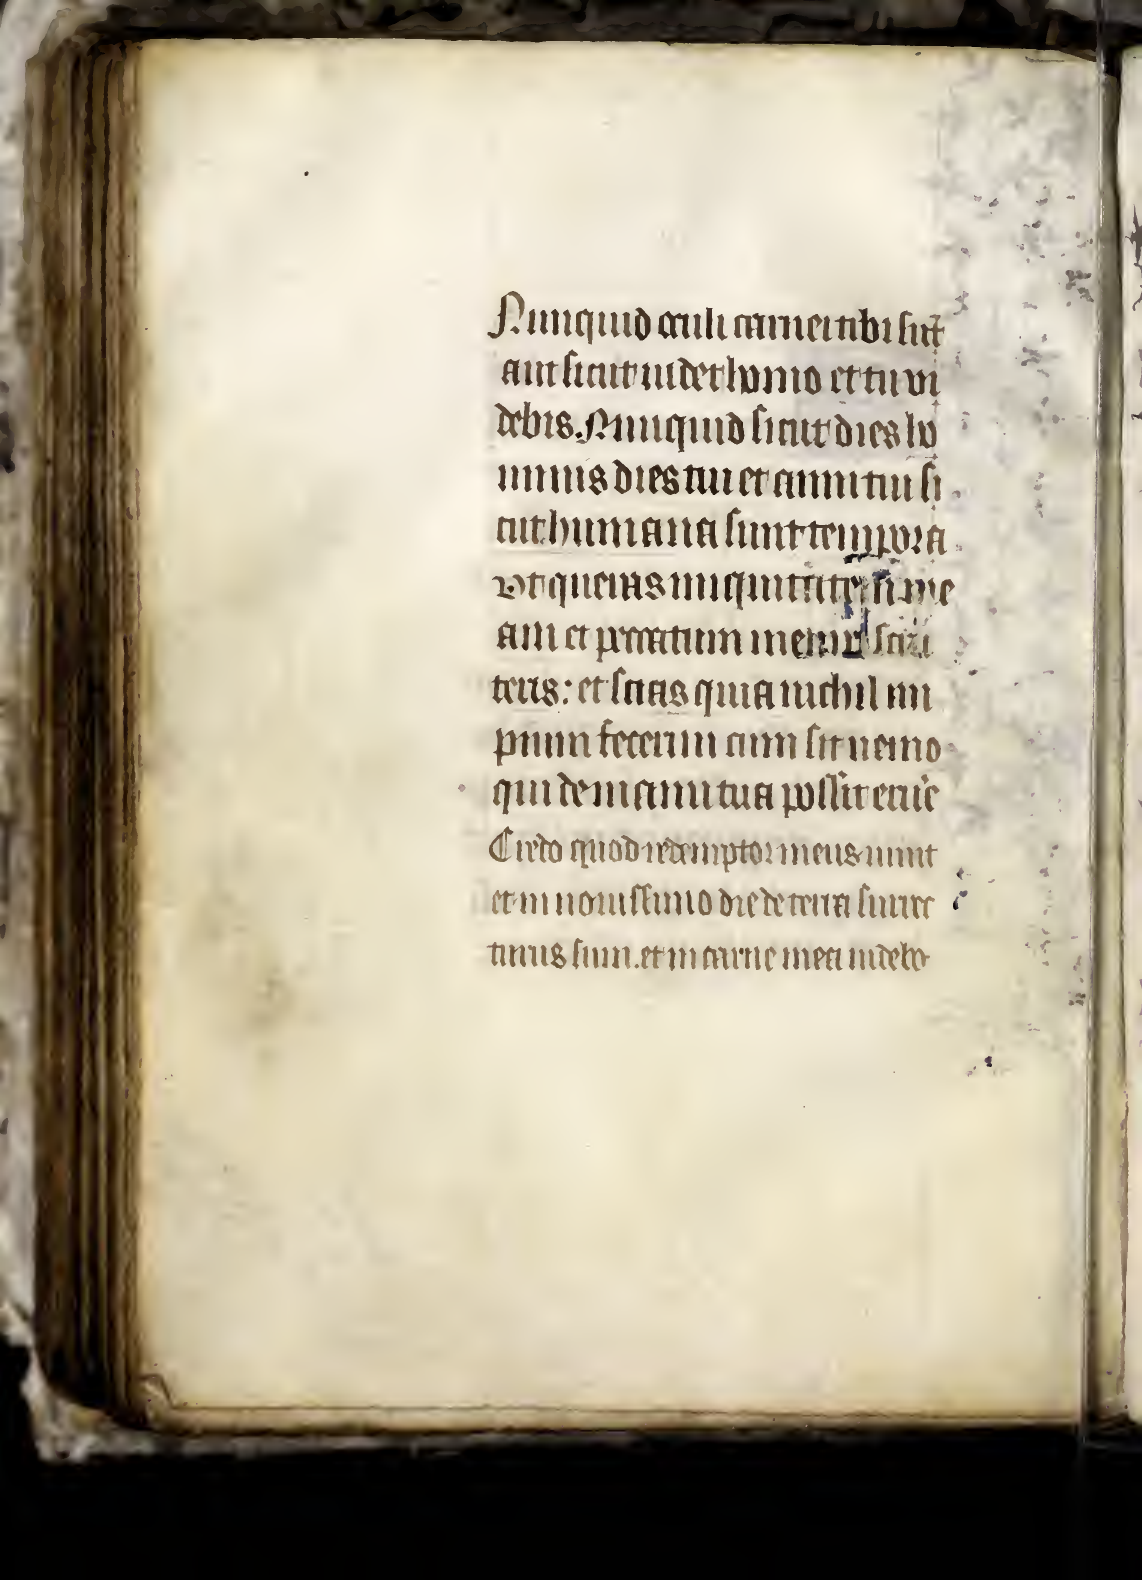 Nunquid oculi carnei tibi sūt
aut sicut uidet homo et tu vi
debis. Nunquid sicut dies ho
minis dies tui et anni tui si
cut humana sunt tempora
vt queras iniquitatē me
am et peccatum meum scru
teris: et scias quia nichil im
pium fecerim cum sit nemo
qui de manu tua possit erue
Credo quod redemptor meus uiuit
et in nouissimo die de terra surrec
turus sum. et in carne mea uidebo